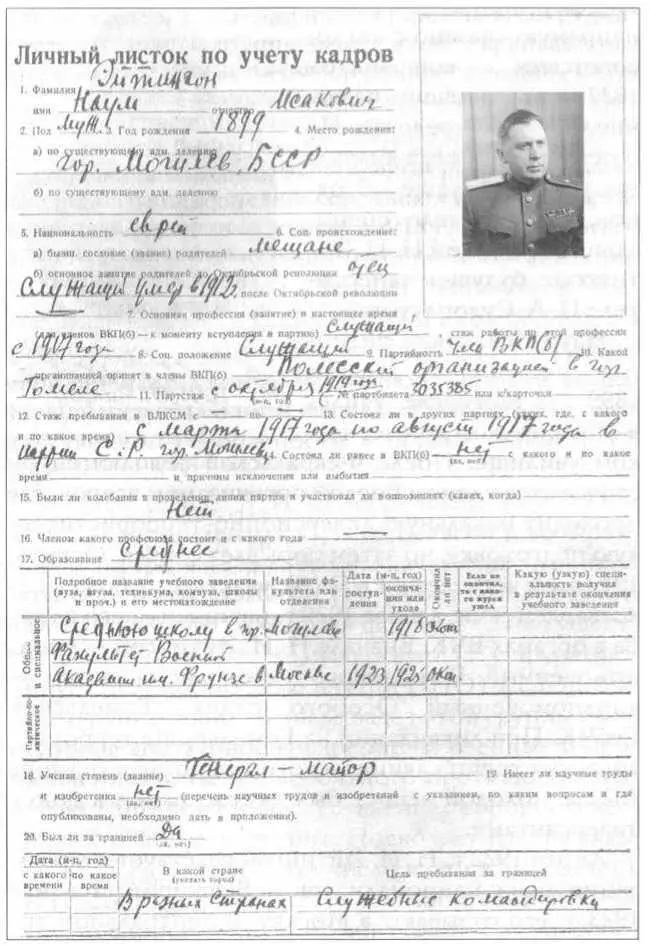 Личный листок по учету кадров
1. Фамилия Эйтингон
имя Наум отчество Исакович
2. Пол муж. 3. Год рождения 1899 4. Место рождения:
а) по существующему адм. делению
гор. Могилев, БССР
б) по существующему адм. делению
5. Национальность еврей 6. Соц. происхождение:
а) бывш. сословие (звание) родителей мещане
б) основное занятие родителей до Октябрьской революции отец
Служащий умер в 1912г. после Октябрьской революции
7. Основная профессия (занятие) и настоящее время
(для членов ВКП(б) — к моменту вступления в партию) служащий, стаж работы по этой профессии
с 1917 года 8. Соц. положение Служащий 9. Партийность член ВКП(б) 10. Какой
организацией принят в члены ВКП(б) Полесской организацией в гор.
Гомеле 11. Партстаж с октября 1919 года № партбилета 2035385 или к/карточки
(м-ц, год)
12. Стаж пребывания в ВЛКСМ с — по — 13. Состоял ли в других партиях (каких, где, с какого
и по какое время) с марта 1917 года по август 1917 года в
партии С.Р. гор. Могилев 14. Состоял ли ранее в ВКП(б) нет с какого и по какое
(да, нет)
время и причины исключения или выбытия
15. Были ли колебания в проведении линии партии и участвовал ли в оппозициях (каких, когда)
Нет
16. Членом какого профсоюза состоит и с какого года —
17. Образование среднее
Подробное название учебного заведения (вуза, втуза, техникума, комвуза, школы и проч.) и его местонахождение
Название факультета или отделения
Дата (м-ц, год)
поступления
окончания или ухода
Окончил ли нет
Если не окончил, то с какого курса ушел
Какую (узкую) специальность получил в результате окончания учебного заведения
Общее и специальное
Среднюю школу в гор. Могилеве 1918
Факультет Военной
Академии им. Фрунзе в Москве 1923 1925
Партийно-политическое
18. Ученая степень (звание) Генерал-майор 19. Имеет ли научные труды
и изобретения нет (перечень научных трудов и изобретений с указанием, по каким вопросам и где
(да, нет)
опубликованы, необходимо дать в приложении).
20. Был ли за границей Да
(да, нет)
Дата (м-ц, год)
с какого времени
по какое время
В какой стране
(указать город)
Цель пребывания за границей
В разных странах Служебные командировки